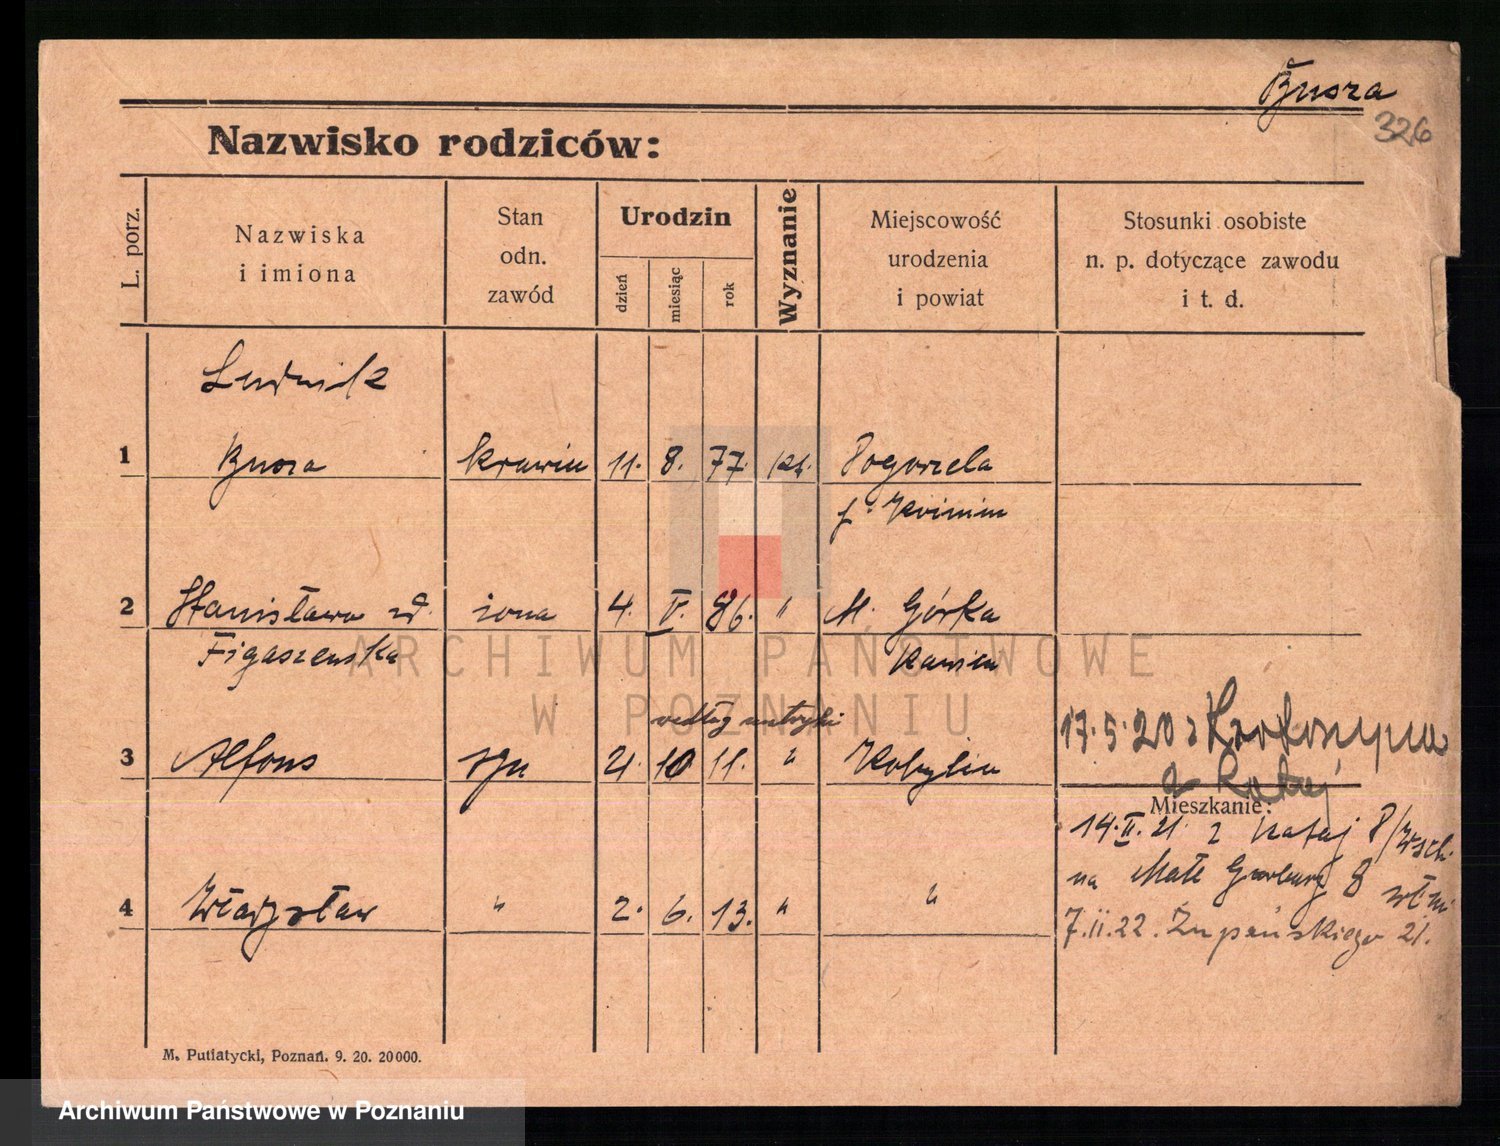 Bzusza
326
Nazwisko rodziców:
L. porz.
Nazwiska
i imiona
Stan
odn.
zawód
Urodzin
dzień
miesiąc
rok
Wyznanie
Miejscowość
urodzenia
i powiat
Stosunki osobiste
n. p. dotyczące zawodu
i t. d.
Ludwik
1 krawiec 11. 8. 77. kt. Pogorzela
2 Stanisława żona 4. V. 86. " M. Górka
Figaszewska Rawicz
według metryki
17.5.20 z Krotoszyna
3 Alfons syn 21. 10 11. " Kobylin
z Rataj
Mieszkanie:
14.II.21. z Rataj
na Małe Garbary 8
4 Władysław " 2. 6. 13. " "
7.II.22. Żupańskiego 21.
M. Putiatycki, Poznań. 9. 20. 20000.
ARCHIWUM PAŃSTWOWE
W POZNANIU
Archiwum Państwowe w Poznaniu